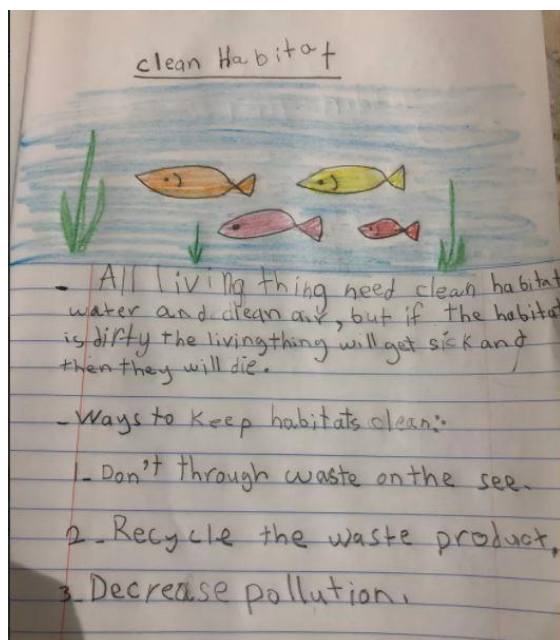 clean Habitat
- All living thing need clean habitat
water and clean air, but if the habitat
is dirty the living thing will get sick and
then they will die.
- Ways to keep habitats clean:
1- Don't through waste on the see.
2- Recycle the waste product.
3- Decrease pollution.